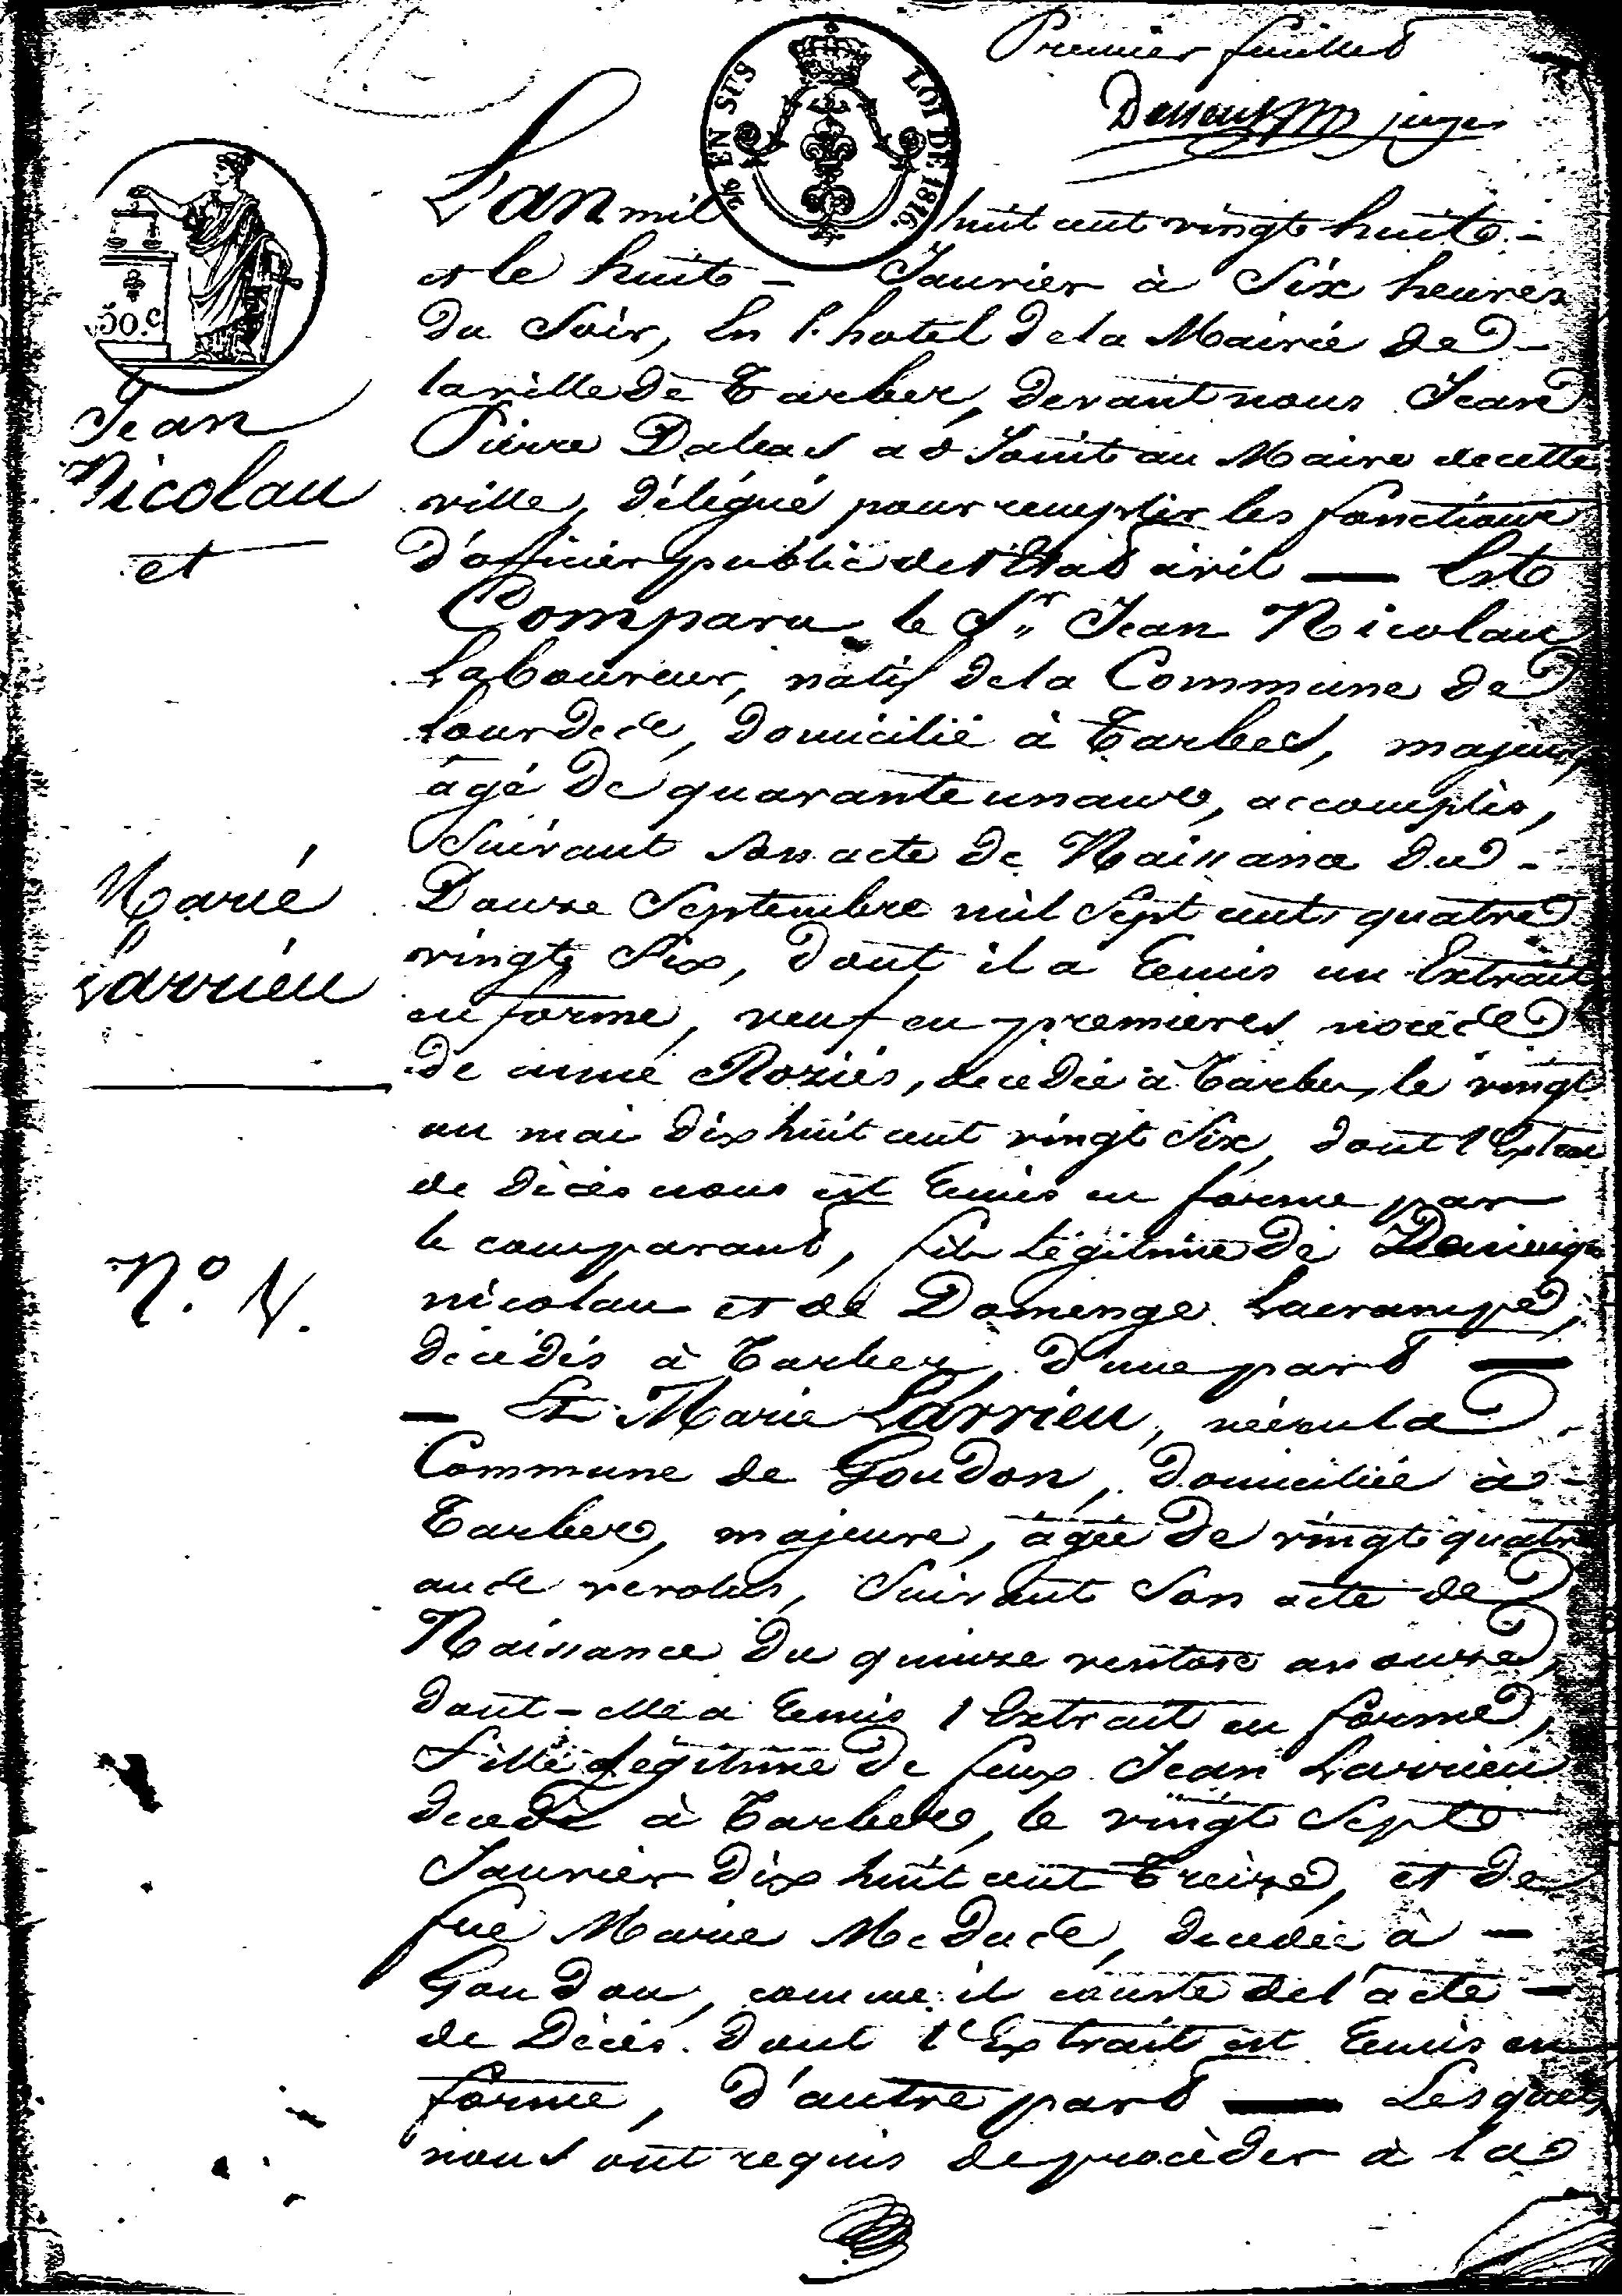 Premier feuillet
juge
2/10 EN SUS
LOI DE 1816.
50.c
L'an mil huit cent vingt huit -
et le huit - Janvier à Six heures
du Soir, En l'hotel de la Mairie de -
la ville de Tarbes, devant nous Jean
Pierre Daleas adJoint au Maire de cette
ville, délégué pour remplir les fonctions
d'officier public de l'Etat civil — Est
Comparu le Sr. Jean Nicolau
Laboureur, natif de la Commune de
Lourdes, domicilié à Tarbes, majeur,
agé de quarante un ans, accomplis,
Suivant Son acte de Naissance du -
Douze Septembre mil Sept cents quatre
vingt Six, dont il a Remis un Extrait
en forme, veuf en premieres noces
de anne Roziés, decedée à Tarbes, le vingt
un mai dix huit cent vingt Six, dont l'Extrait
de décès nous est Remis en forme par
le comparant, fils Légitime de
nicolau et de Domenge Lacrampe,
décédés à Tarbes, d'une part —
— Et Marie Larrieu, née en la
Commune de Goudon, domiciliée à -
Tarbes, majeure, agée de vingt quatre
ans revolus, Suivant Son acte de
Naissance du quinze ventose an onze,
dont - elle a Remis l'Extrait en forme,
Fille Légitime de feux Jean Larrieu
decedé à Tarbes, le vingt Sept
Janvier dix huit cent Treize, et de
feue Marie Medus, decedée à -
Goudon, comme il conste de l'acte -
de Décès dont l'Extrait est Remis en
forme, d'autre part — Lesquels
nous ont requis de procèder à la
Jean
Nicolau
et
Marie
Larrieu
N.o 1.